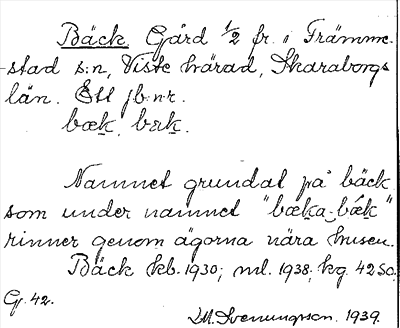 Bäck Gård 1/2 fr. i Främme-
stad s:n, Viste härad, Skaraborgs
län. Ett jb:nr.
bæk, bæk.
Namnet grundat på bäck
som under namnet "bæka-bæk"
rinner genom ägorna nära husen.
Bäck kb. 1930; ml. 1938; kg. 42 So.
Gr. 42.
I.M. Svenungson. 1939.